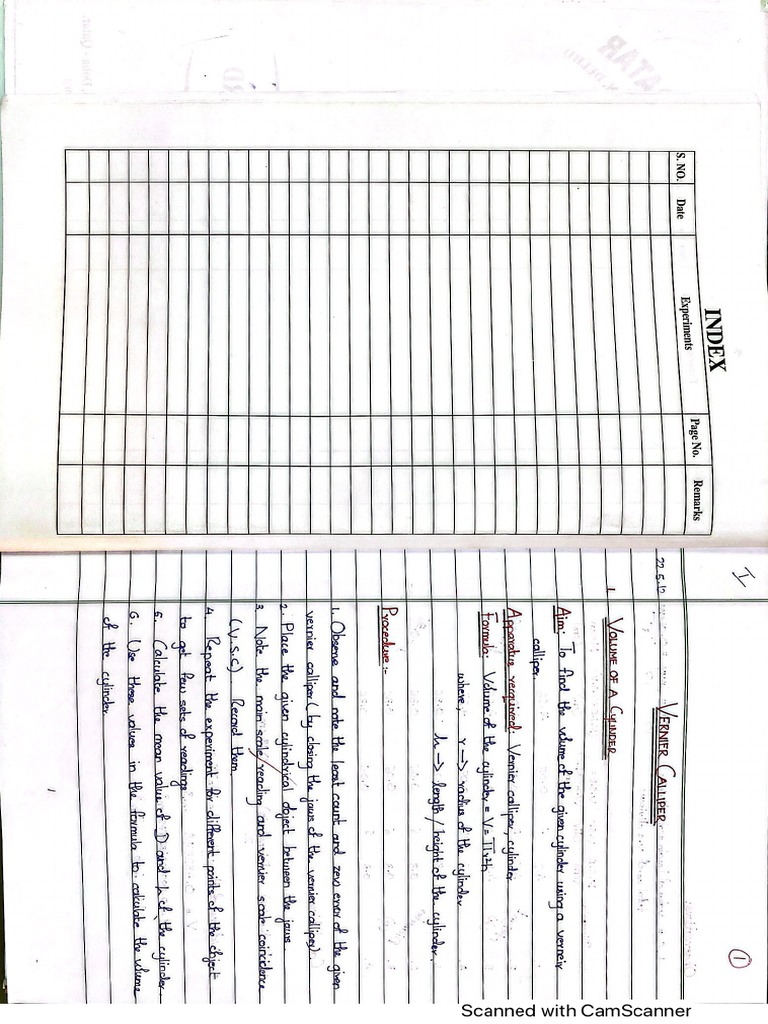 INDEX
S. NO.
Date
Experiments
Page No.
Remarks
I
1
VERNIER CALLIPER
1. VOLUME OF A CYLINDER
Aim: To find the volume of the given cylinder using a verneir
calliper.
Apparatus required: Vernier calliper, cylinder
Formula: Volume of the cylinder = V = πr²h
where, r → radius of the cylinder
h → length / height of the cylinder.
Procedure:-
1. Observe and note the least count and zero error of the given
vernier calliper (by closing the jaws of the vernier calliper).
2. Place the given cylindrical object between the jaws.
3. Note the main scale reading and vernier scale coincidence
(V.S.C) Record them.
4. Repeat the experiment for different points of the object
to get few sets of reading.
5. Calculate the mean value of D and h of the cylinder.
6. Use these values in the formula to calculate the volume
of the cylinder
Scanned with CamScanner